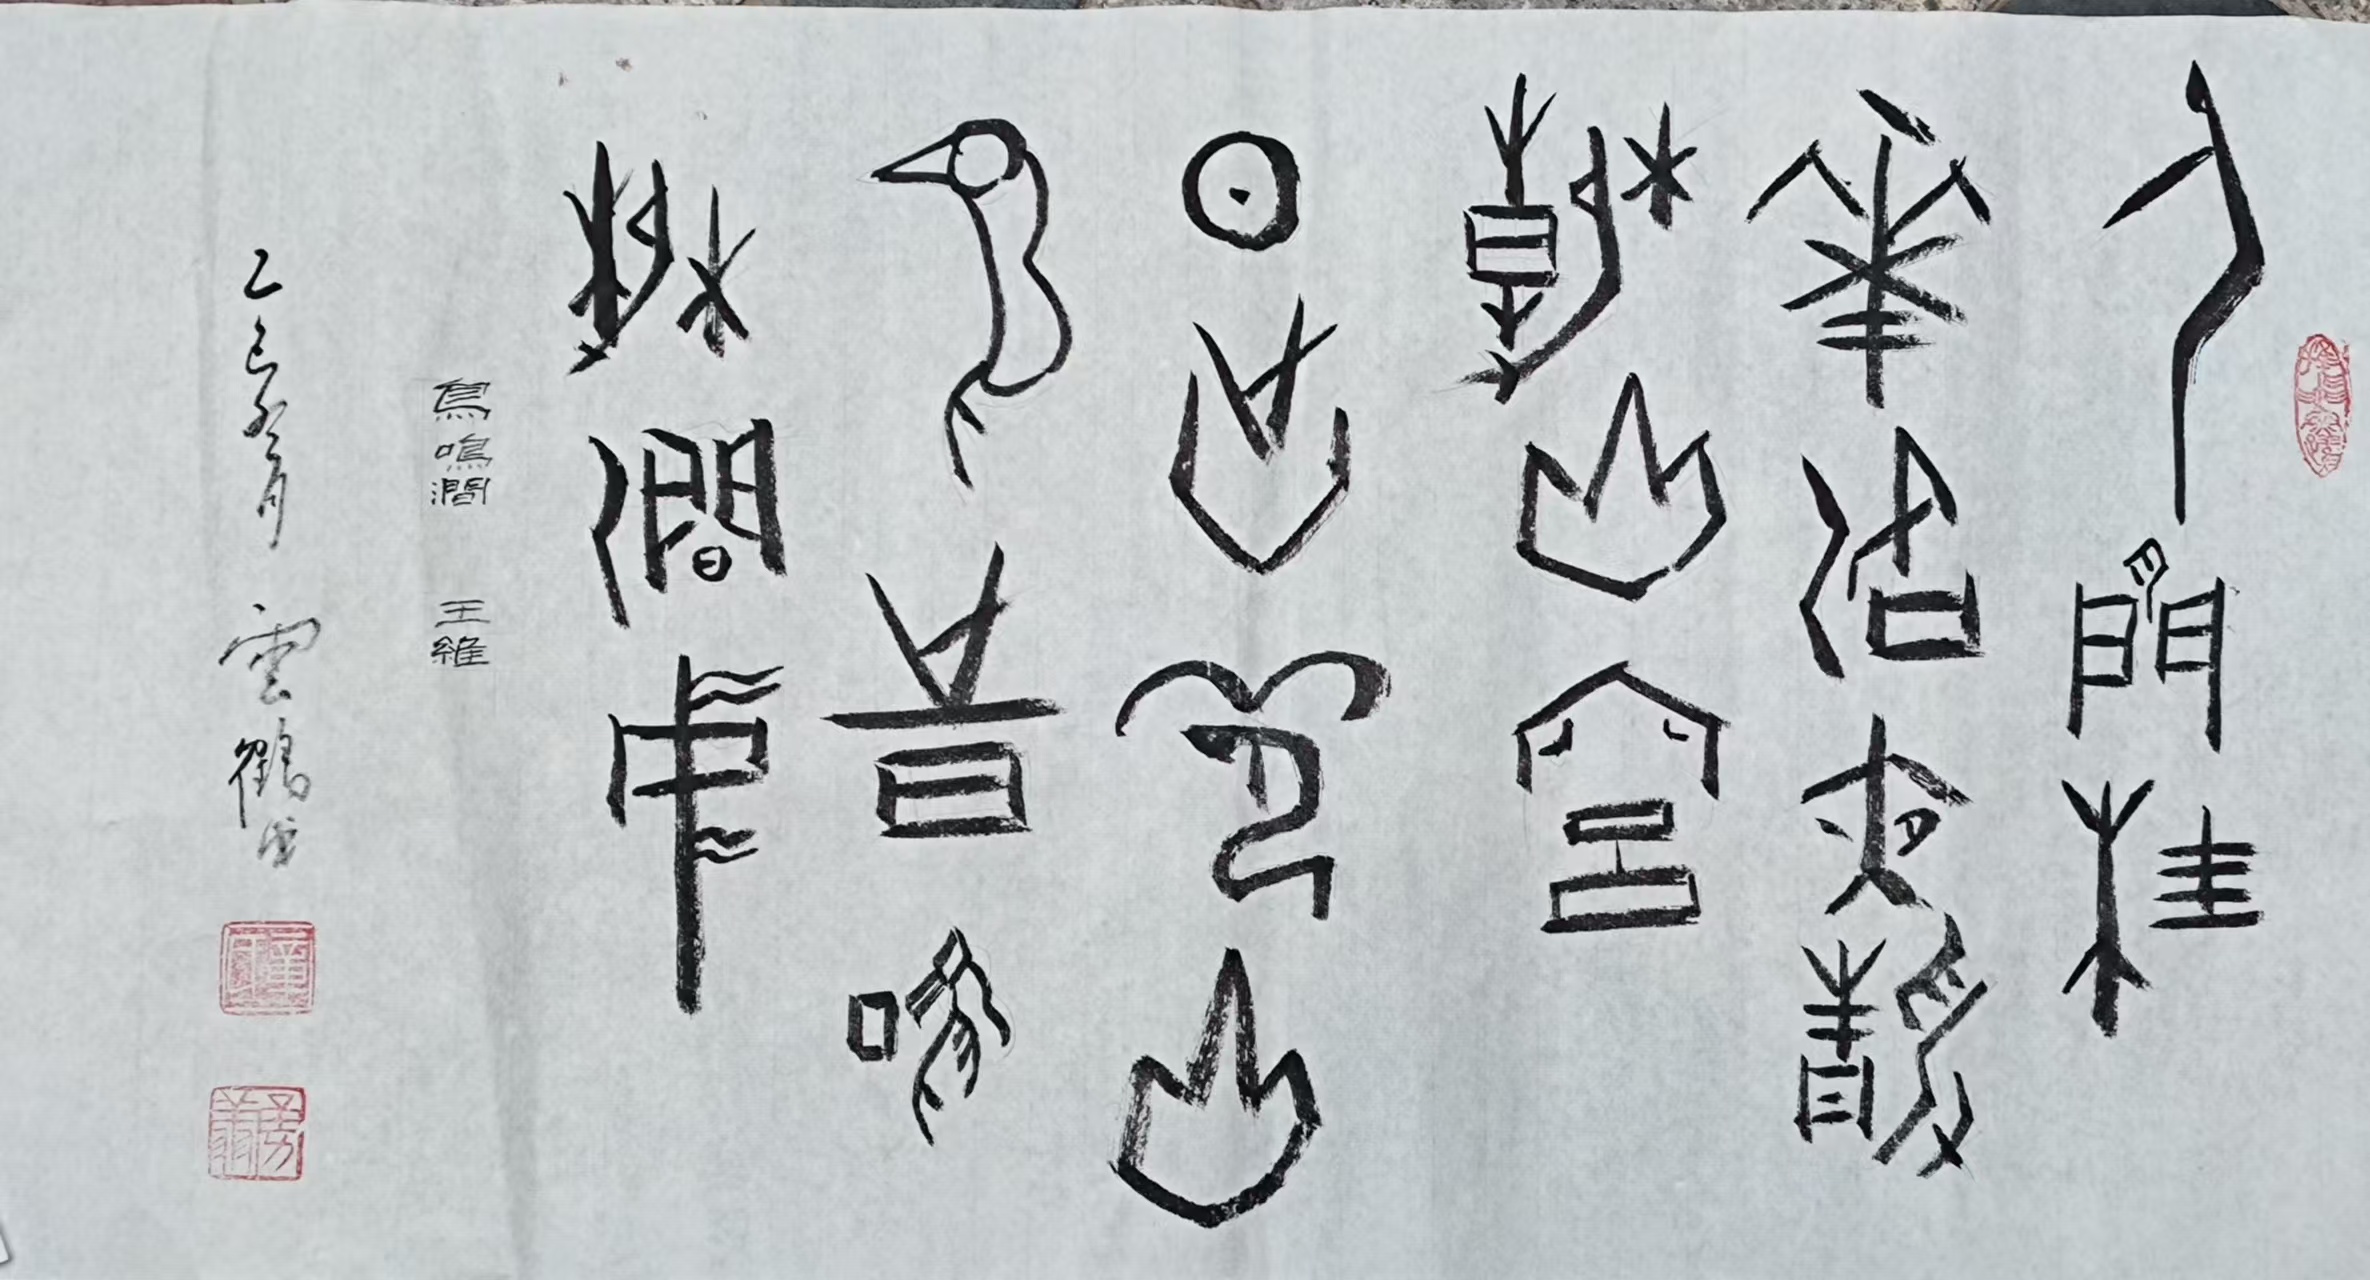 人閒桂
華洛夜靜
春山空
日出驚山
鳥旹鳴
春澗中
鳥鳴澗 王維
乙巳 月 雲鶴書